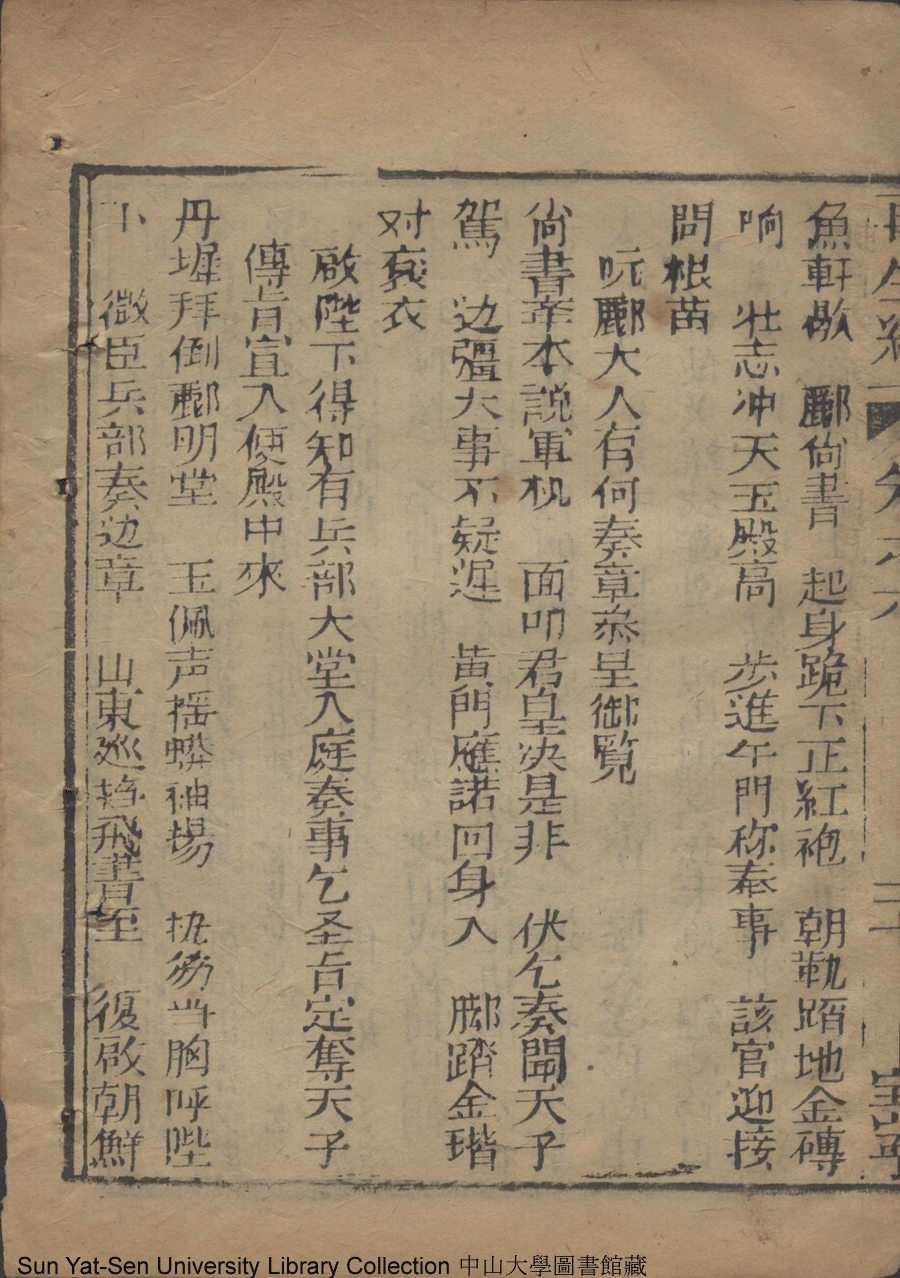 再生縁 卷之六 三十
魚軒歇 酈尚書 起身跪下正紅袍 朝靴踏地金磚
响 壮志冲天玉殿高 步進午門称奏事 該官迎接
問根苗
吮酈大人有何奏章恭呈御覧
尚書荦本説軍机 面叩君皇决是非 伏乞奏聞天子
駕 边疆大事不疑遅 黄門應諾回身入 脚躋金堦
对衮衣
啟陛下得知有兵部大堂入庭奏事乞圣旨定奪天子
傳旨宣入便殿中來
丹墀拜倒酈明堂 玉佩声揺蟒袖揚 当胸呼陛
下 微臣兵部奏边章 山東廵撫飛書至 復啟朝鮮
Sun Yat-Sen University Library Collection 中山大學圖書館藏